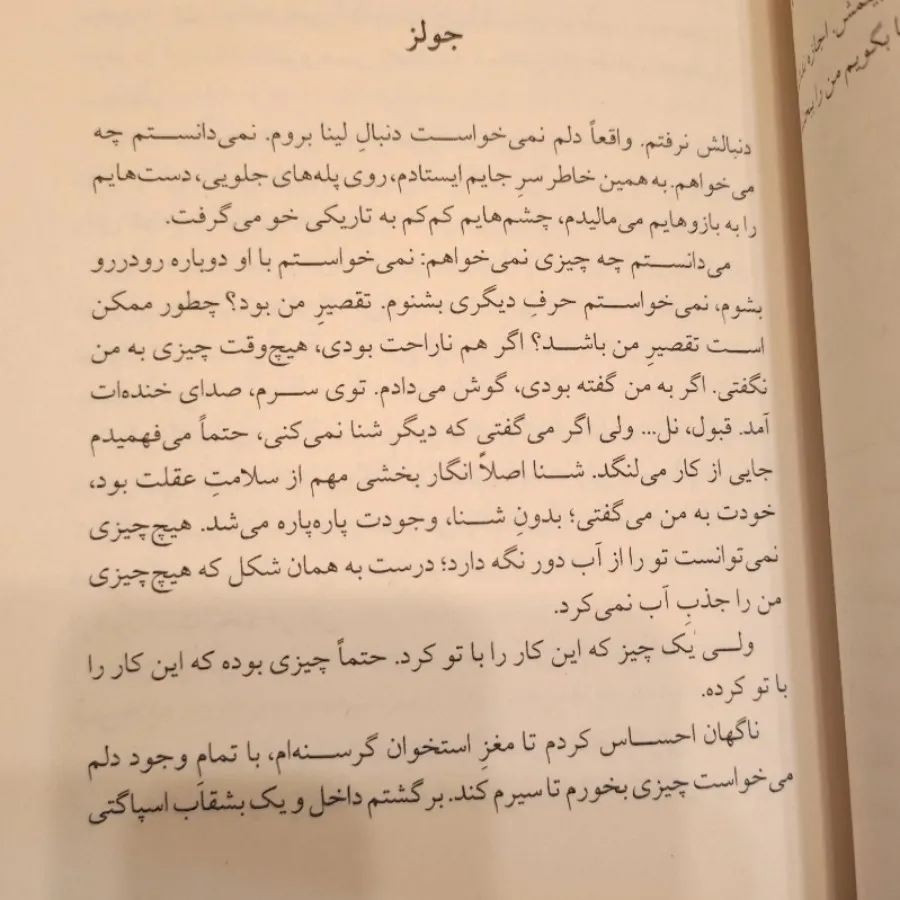 جولز
دنبالش نرفتم. واقعاً دلم نمی‌خواست دنبالِ لینا بروم. نمی‌دانستم چه
می‌خواهم. به همین خاطر سرِ جایم ایستادم، روی پله‌های جلویی، دست‌هایم
را به بازوهایم می‌مالیدم، چشم‌هایم کم‌کم به تاریکی خو می‌گرفت.
می‌دانستم چه چیزی نمی‌خواهم: نمی‌خواستم با او دوباره رودررو
بشوم، نمی‌خواستم حرفِ دیگری بشنوم. تقصیرِ من بود؟ چطور ممکن
است تقصیرِ من باشد؟ اگر هم ناراحت بودی، هیچ‌وقت چیزی به من
نگفتی. اگر به من گفته بودی، گوش می‌دادم. توی سرم، صدای خنده‌ات
آمد. قبول، نل... ولی اگر می‌گفتی که دیگر شنا نمی‌کنی، حتماً می‌فهمیدم
جایی از کار می‌لنگد. شنا اصلاً انگار بخشی مهم از سلامتِ عقلت بود،
خودت به من می‌گفتی؛ بدونِ شنا، وجودت پاره‌پاره می‌شد. هیچ‌چیزی
نمی‌توانست تو را از آب دور نگه دارد؛ درست به همان شکل که هیچ‌چیزی
من را جذبِ آب نمی‌کرد.
ولی یک چیز که این کار را با تو کرد. حتماً چیزی بوده که این کار را
با تو کرده.
ناگهان احساس کردم تا مغزِ استخوان گرسنه‌ام، با تمامِ وجود دلم
می‌خواست چیزی بخورم تا سیرم کند. برگشتم داخل و یک بشقاب اسپاگتی
اجازه
بگویم من را